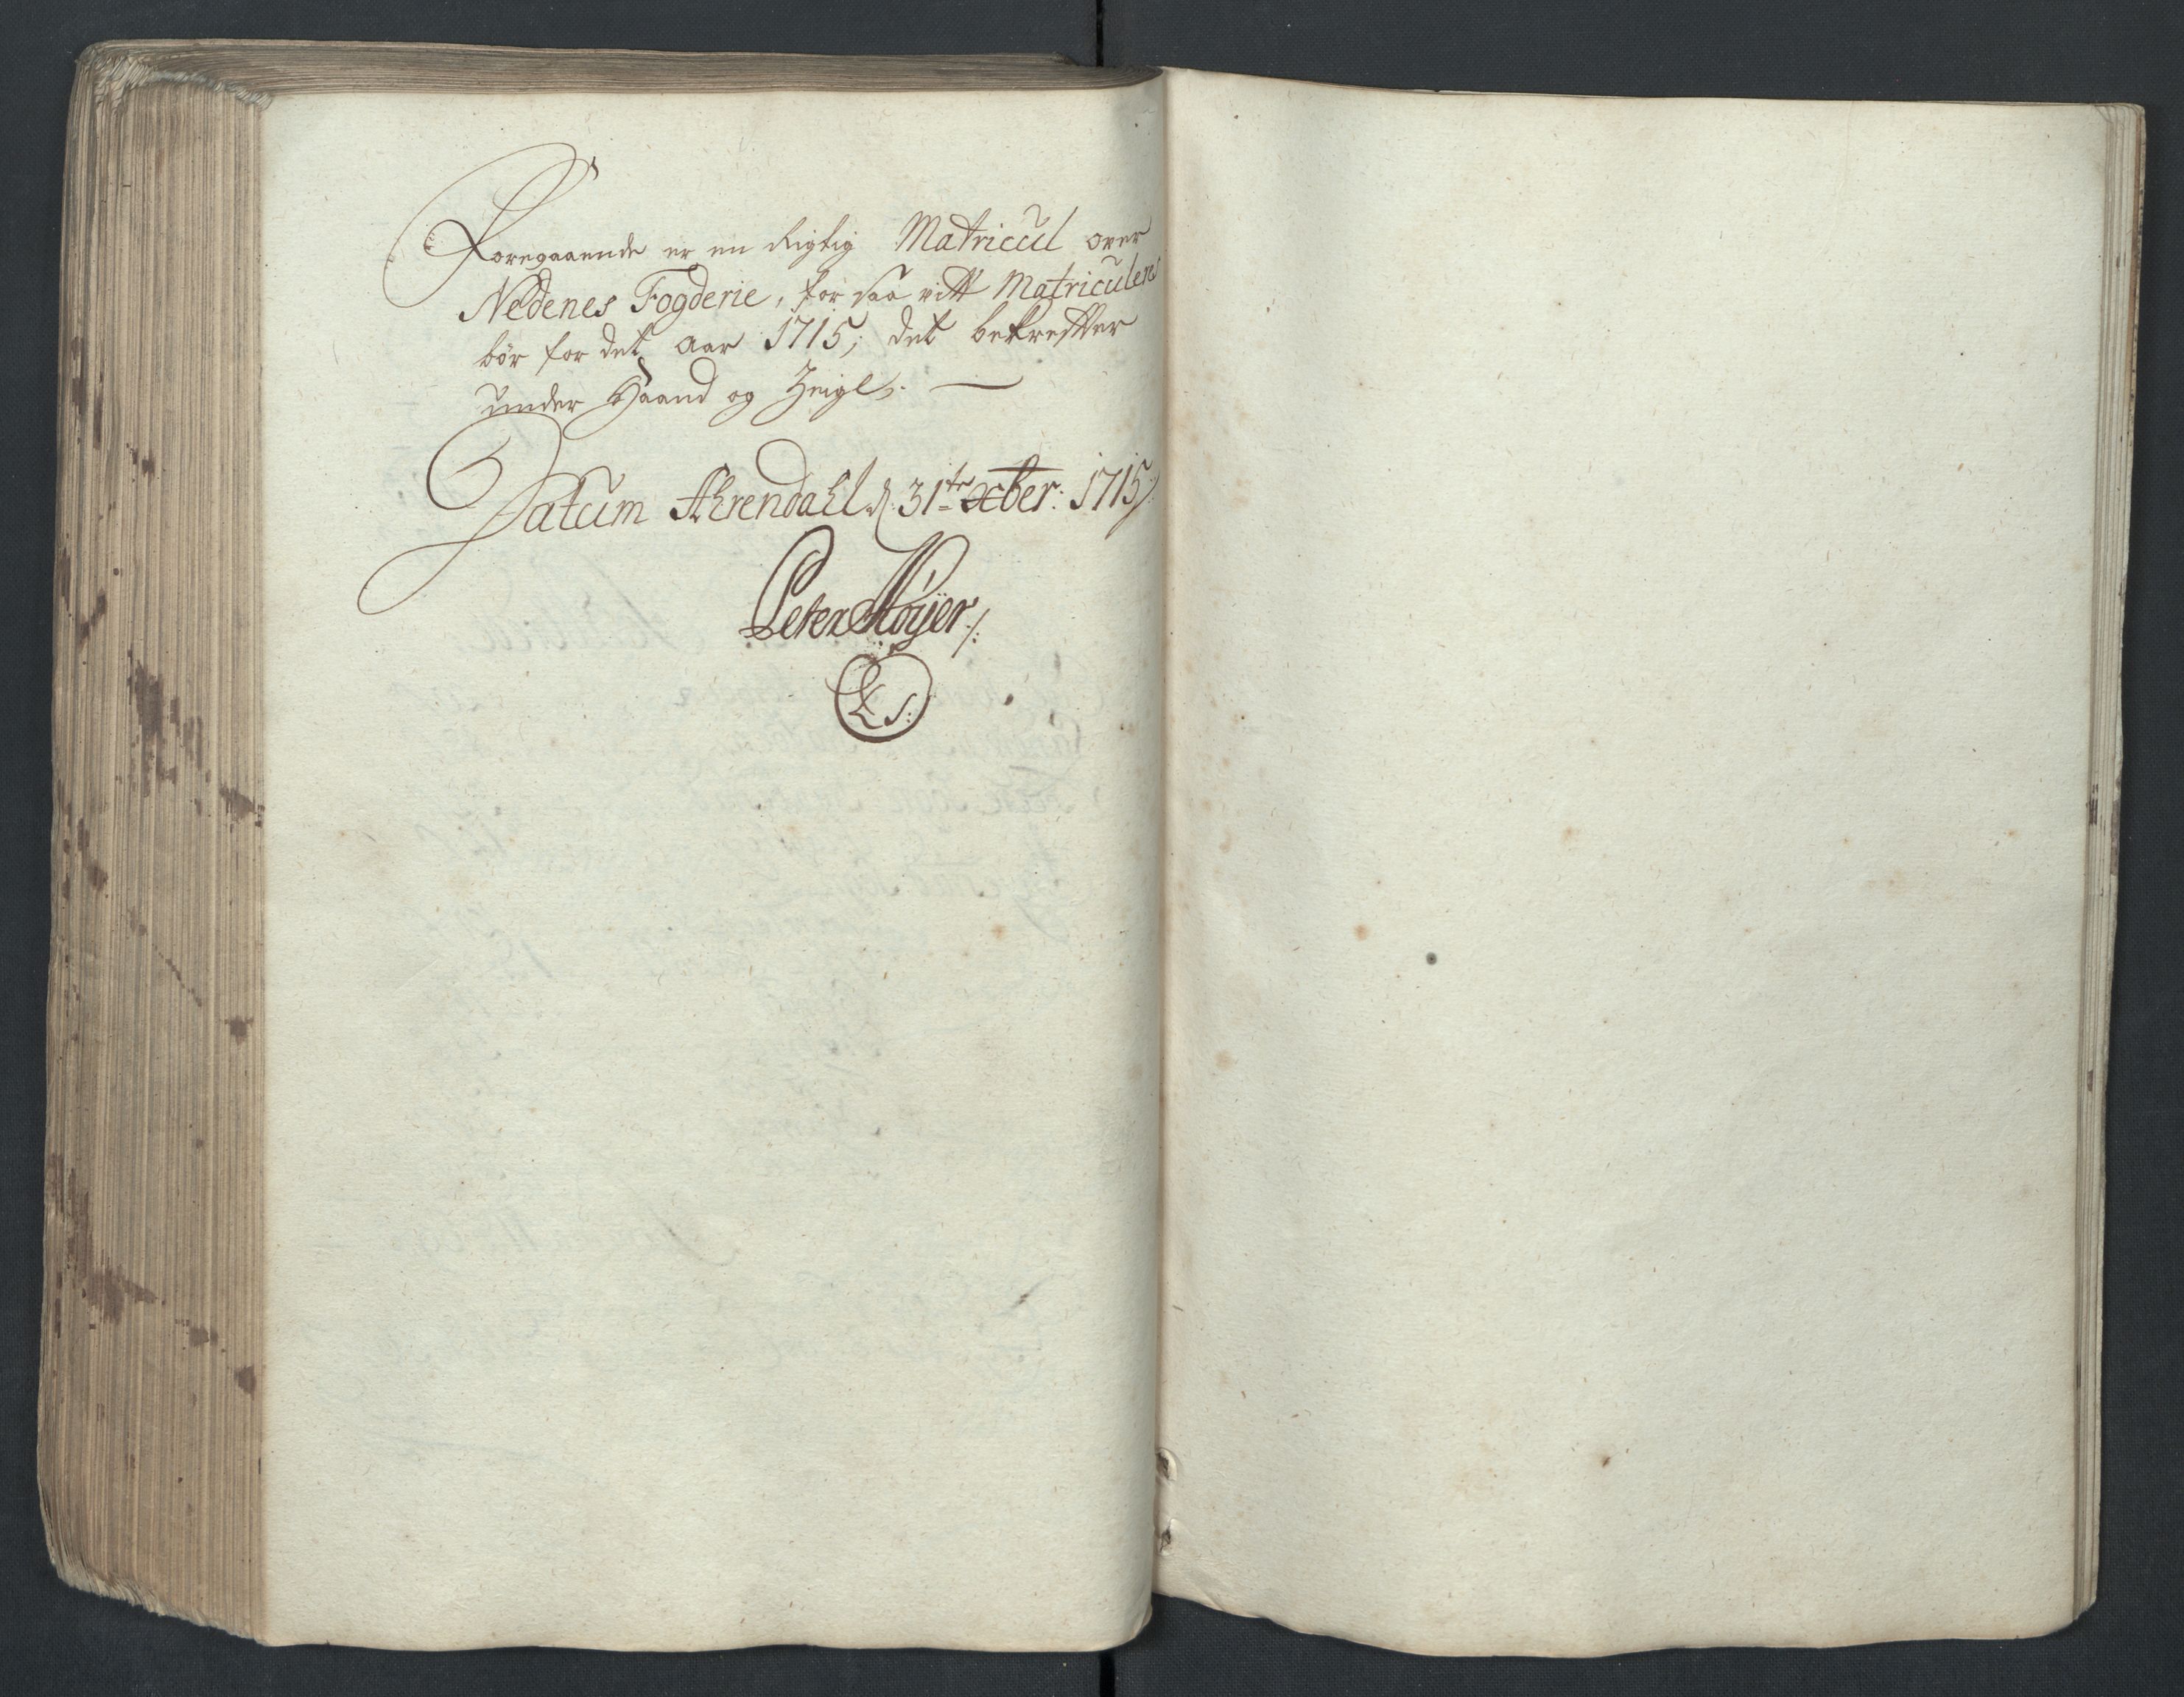 Foregaaende er en Rigtig Matricul over
Nedenes Fogderie, for saa vitt Matriculen
bør for det Aar 1715, det bekrefter
under Haand og Zeigl.
Datum Ahrendahl d: 31te xber: 1715
Peter Høyer
LS: